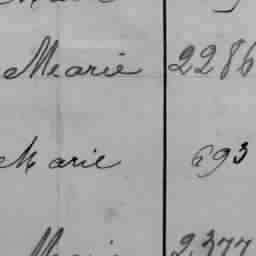 Marie 2286
Marie 693
Marie 2377